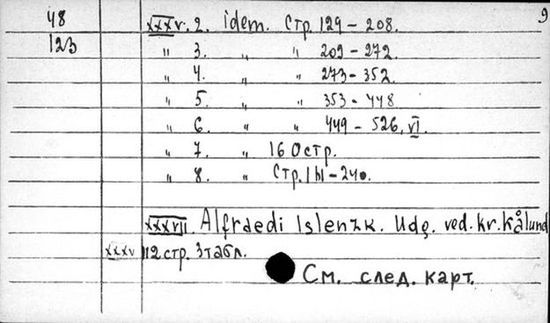 9
48 xxxv. 2. idem. Стр. 129 – 208.
123 " 3. " " 209 – 272.
" 4. " " 273 – 352.
" 5. " " 353 – 448
" 6. " " 449 – 526, VI.
" 7. " 160 стр.
" 8. " Стр. 161 – 240.
xxxvii. Alfraedi Islenzk. Udg. ved. Kr. Kålund
xxxv 112 стр. 3 табл.
См. след. карт.